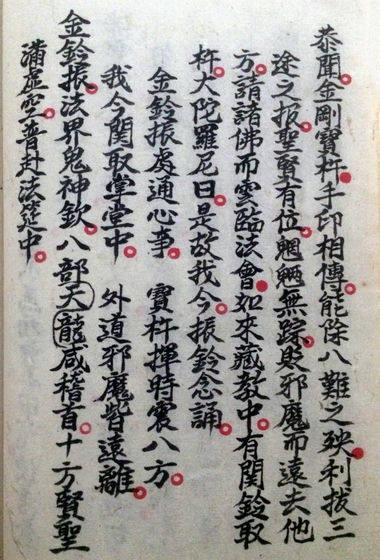 恭聞金剛寶杵手印相傳能除八難之殃利拔三
途之报聖賢有位魍魎無踪貶邪魔而遠去他
方請諸佛而雲臨法會如來藏教中有関鈴取
杵大陀羅尼曰是故我今振鈴念誦
金鈴振處通心事 寶杵揮時震八方
我今関取堂堂中 外道邪魔皆遠離
金鈴振法界鬼神欽八部天龍咸稽首十方賢聖
滿虚空普赴法筵中